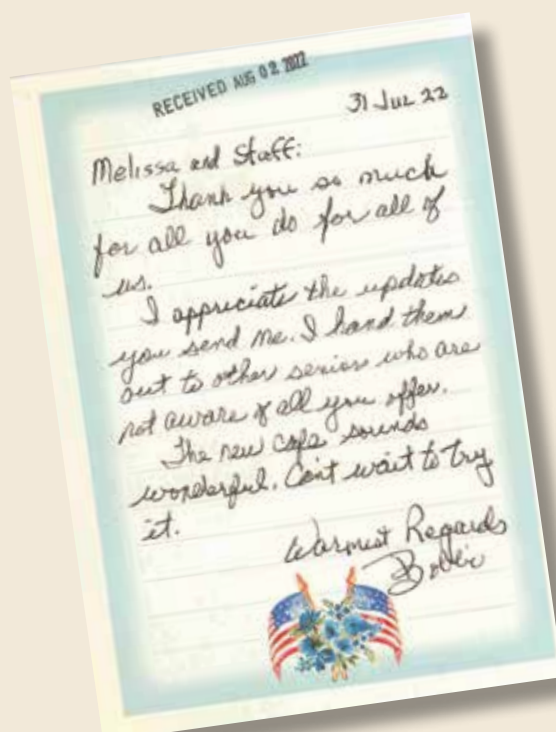 RECEIVED AUG 02 2022
31 Jul 22
Melissa and Staff:
Thank you so much
for all you do for all of
us.
I appreciate the updates
you send me. I hand them
out to other seniors who are
not aware of all you offer.
The new cafe sounds
wonderful. Can't wait to try
it.
Warmest Regards